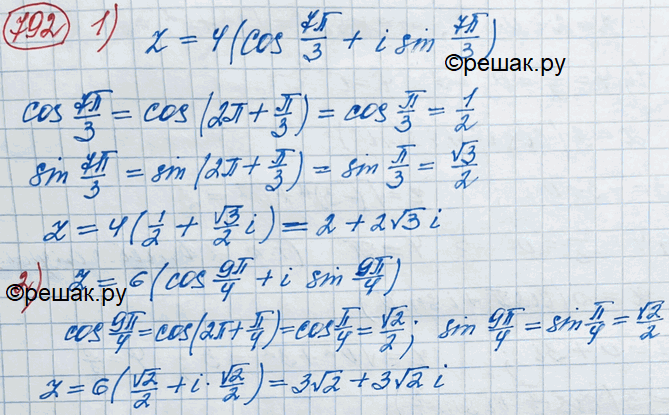 792 1) z = 4(cos 7π/3 + i sin 7π/3)
©решак.ру
cos 7π/3 = cos(2π + π/3) = cos π/3 = 1/2
sin 7π/3 = sin(2π + π/3) = sin π/3 = √3/2
z = 4(1/2 + √3/2 i) = 2 + 2√3 i
2) z = 6(cos 9π/4 + i sin 9π/4)
©решак.ру
cos 9π/4 = cos(2π + π/4) = cos π/4 = √2/2; sin 9π/4 = sin π/4 = √2/2
z = 6(√2/2 + i · √2/2) = 3√2 + 3√2 i